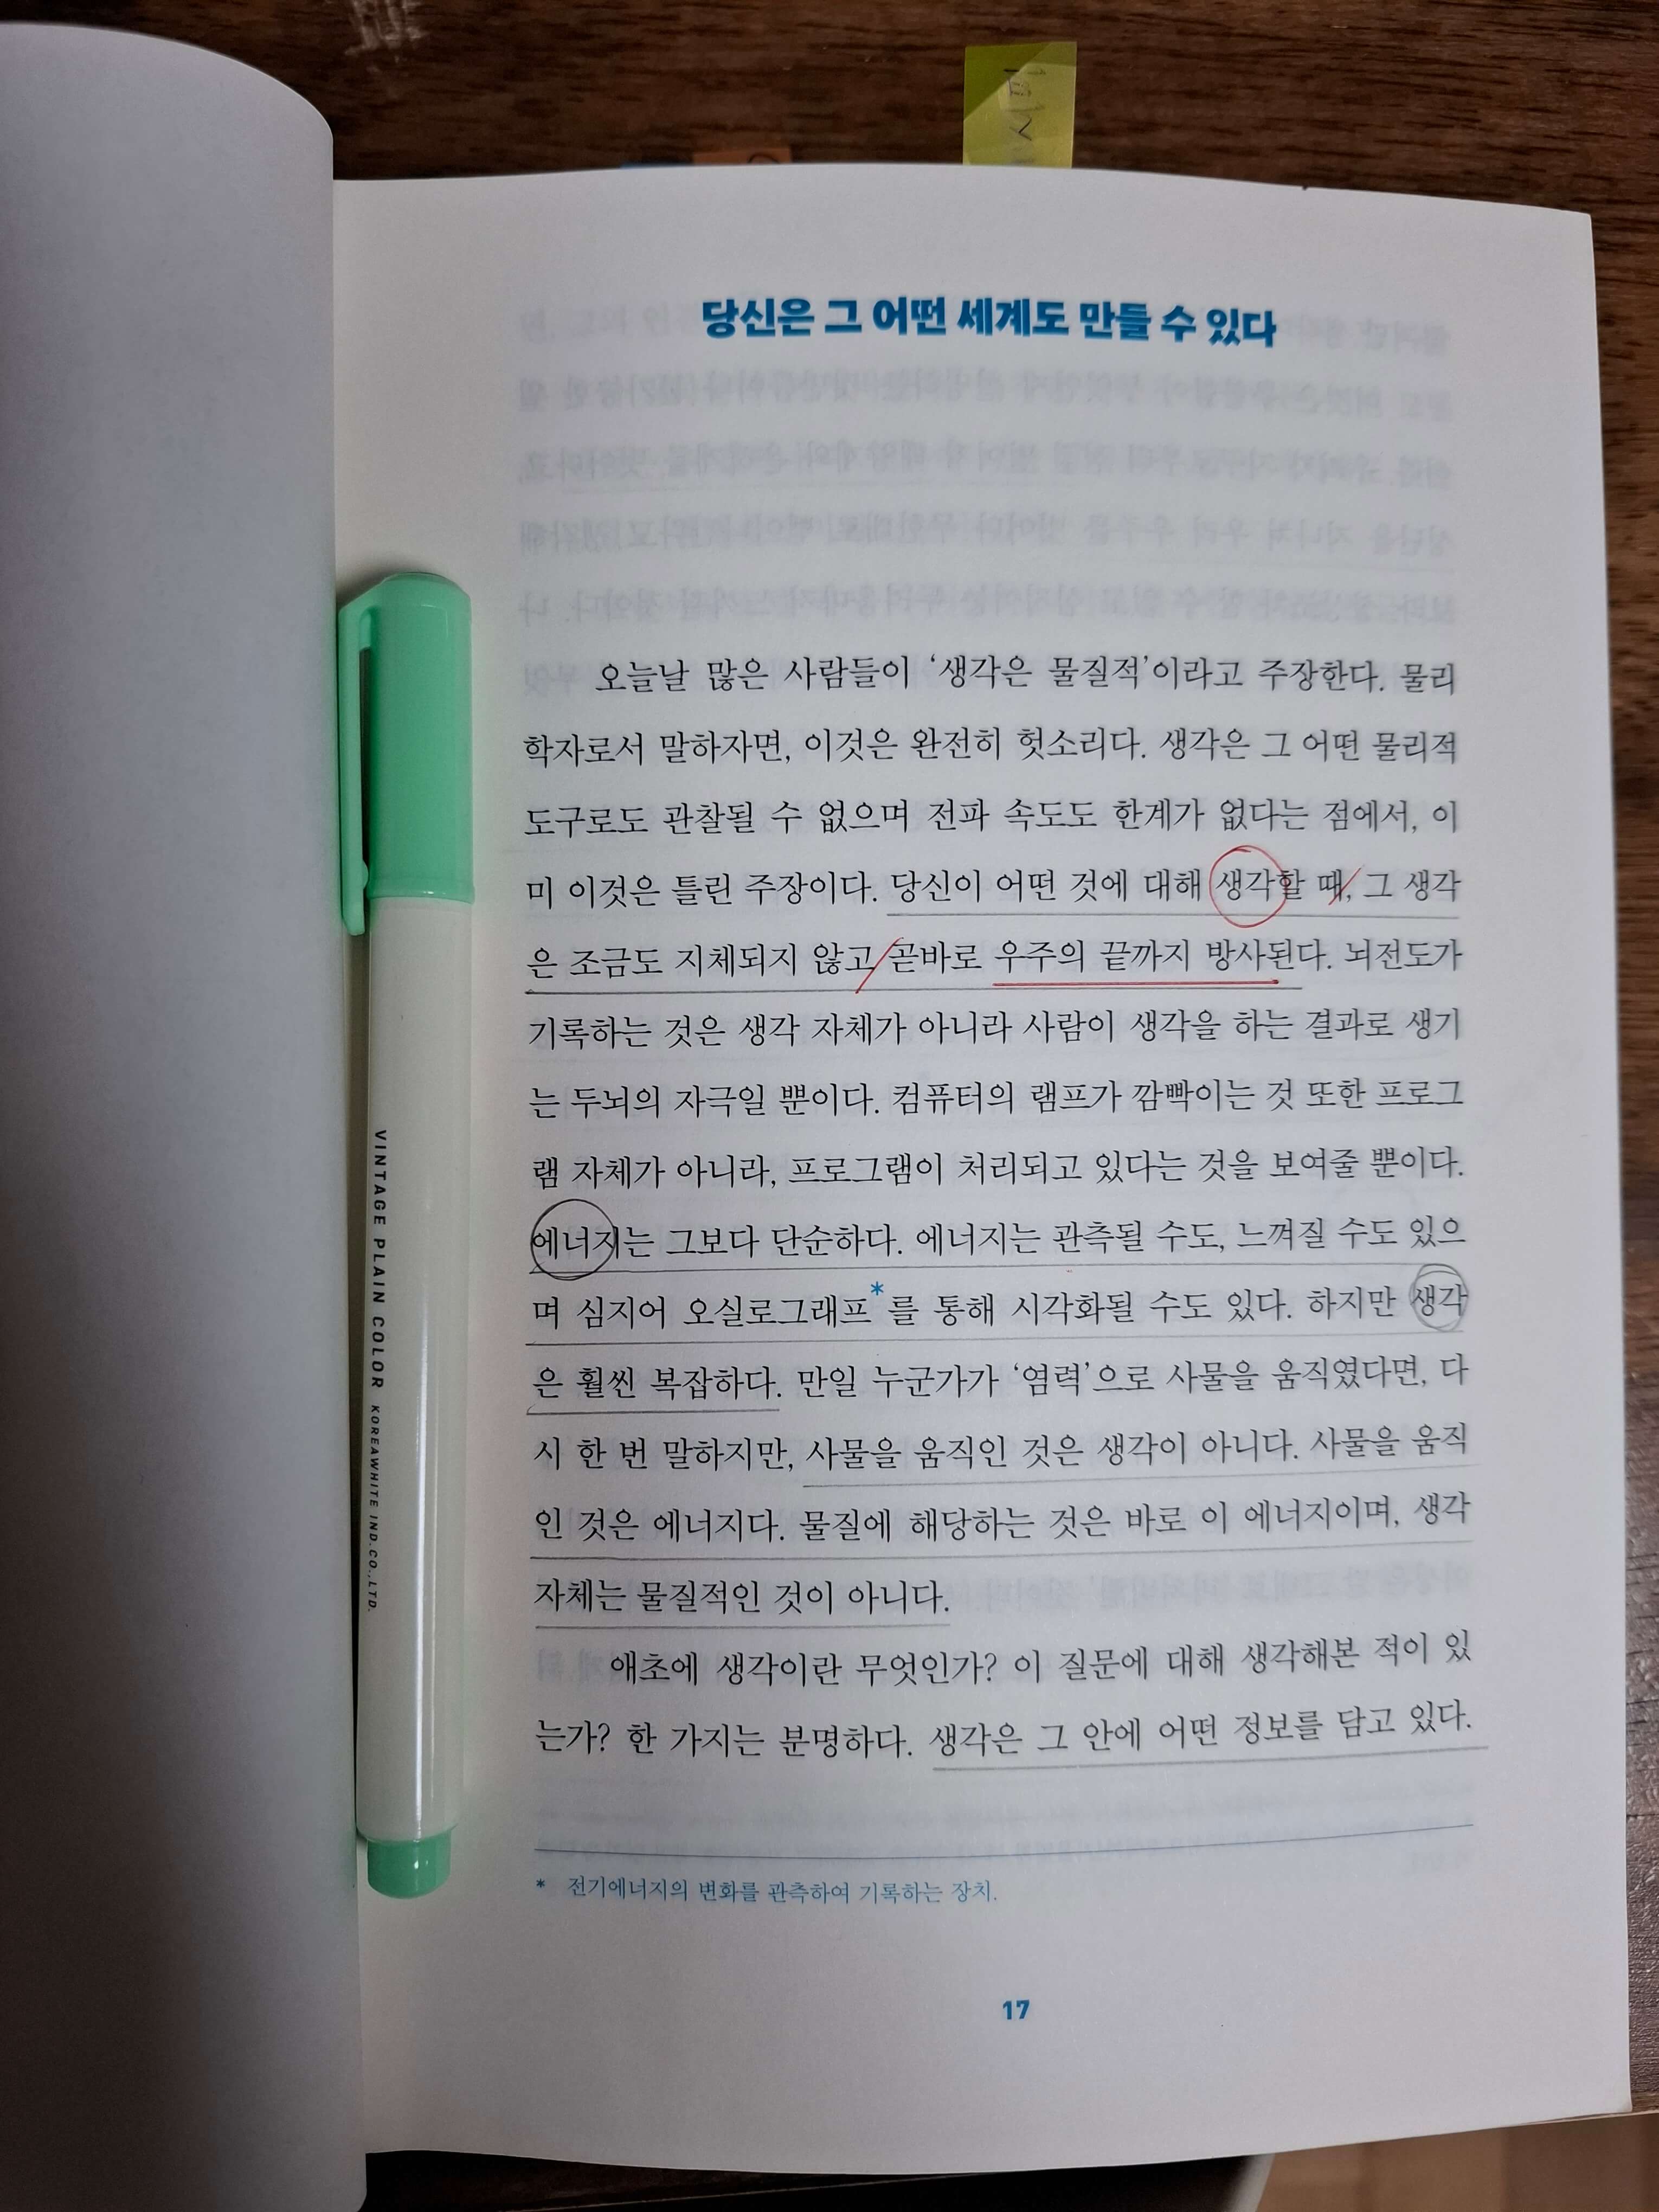 당신은 그 어떤 세계도 만들 수 있다
오늘날 많은 사람들이 ‘생각은 물질적’이라고 주장한다. 물리
학자로서 말하자면, 이것은 완전히 헛소리다. 생각은 그 어떤 물리적
도구로도 관찰될 수 없으며 전파 속도도 한계가 없다는 점에서, 이
미 이것은 틀린 주장이다. 당신이 어떤 것에 대해 생각할 때, 그 생각
은 조금도 지체되지 않고 곧바로 우주의 끝까지 방사된다. 뇌전도가
기록하는 것은 생각 자체가 아니라 사람이 생각을 하는 결과로 생기
는 두뇌의 자극일 뿐이다. 컴퓨터의 램프가 깜빡이는 것 또한 프로그
램 자체가 아니라, 프로그램이 처리되고 있다는 것을 보여줄 뿐이다.
에너지는 그보다 단순하다. 에너지는 관측될 수도, 느껴질 수도 있으
며 심지어 오실로그래프*를 통해 시각화될 수도 있다. 하지만 생각
은 훨씬 복잡하다. 만일 누군가가 ‘염력’으로 사물을 움직였다면, 다
시 한 번 말하지만, 사물을 움직인 것은 생각이 아니다. 사물을 움직
인 것은 에너지다. 물질에 해당하는 것은 바로 이 에너지이며, 생각
자체는 물질적인 것이 아니다.
애초에 생각이란 무엇인가? 이 질문에 대해 생각해본 적이 있
는가? 한 가지는 분명하다. 생각은 그 안에 어떤 정보를 담고 있다.
* 전기에너지의 변화를 관측하여 기록하는 장치.
17
VINTAGE PLAIN COLOR KOREAWHITE IND.CO.,LTD.